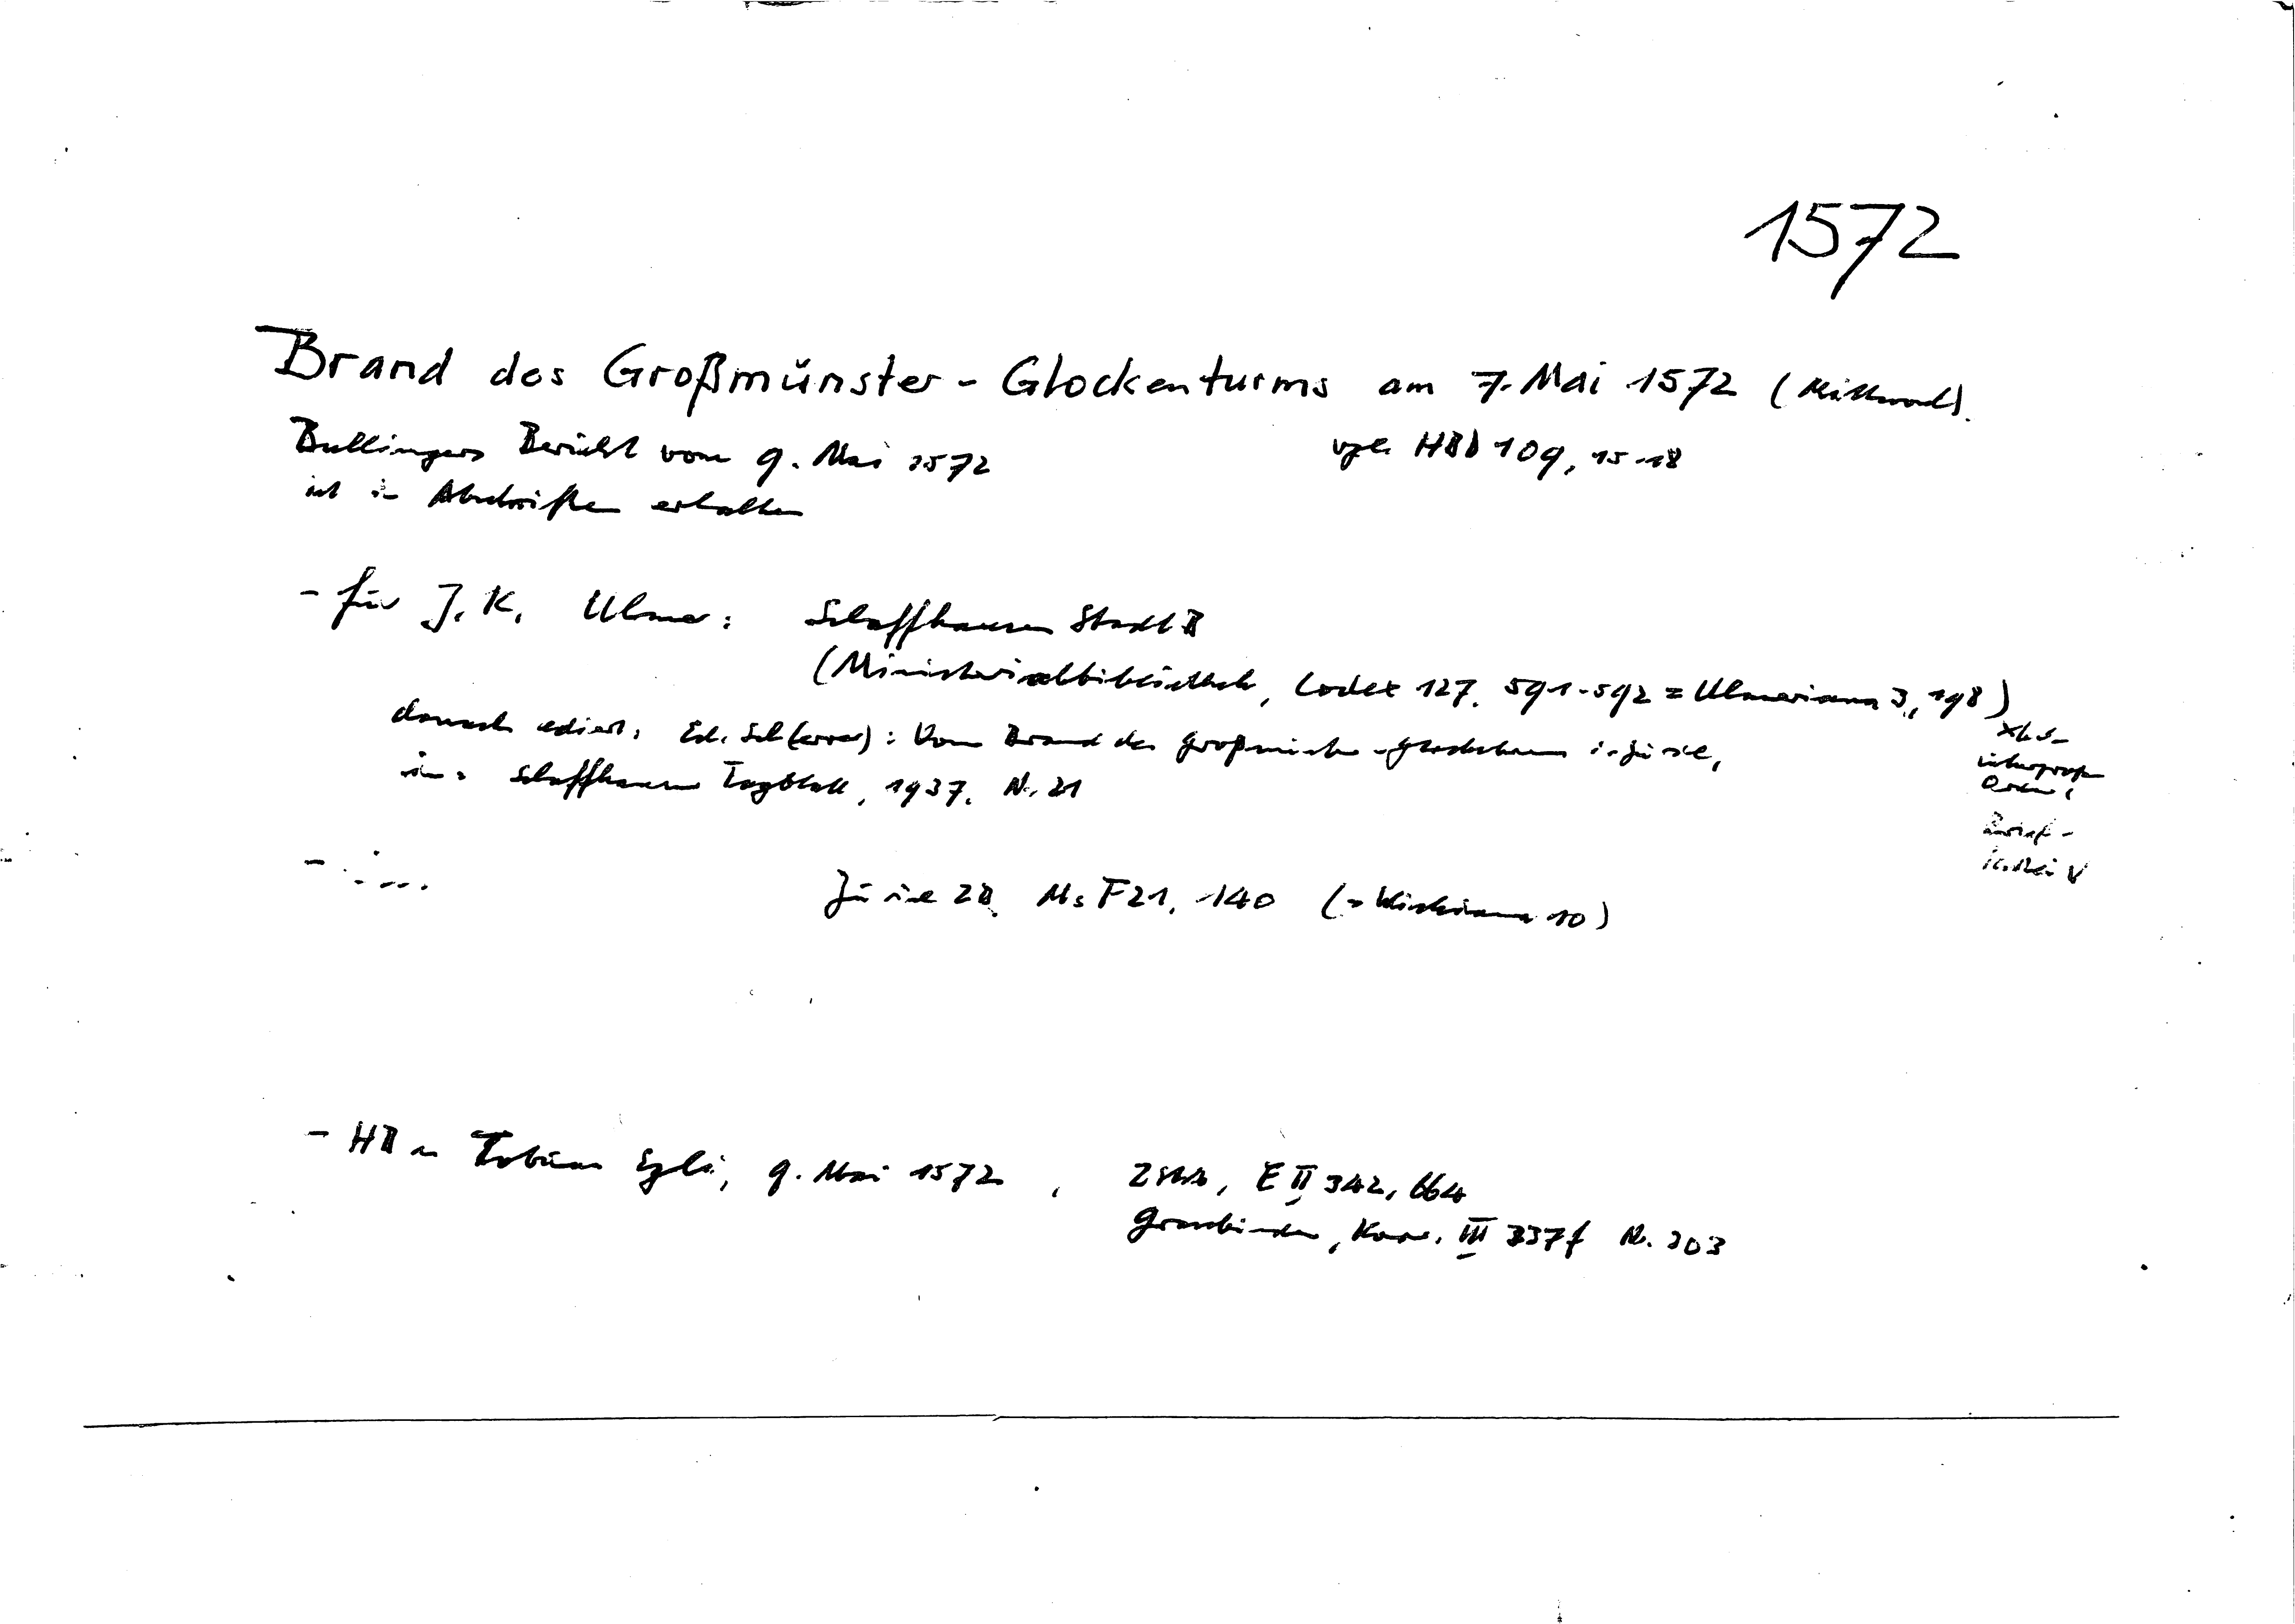 1572
Brand des Großmünster-Glockenturms am 7. Mai 1572 (Mittwoch).
Bullingers Bericht vom 9. Mai 1572 vgl. HBD 109, 15-18
ist in Abschriften erhalten
- für J. K. Ulmer: Schaffhausen StadtB
(Ministerialbibliothek, Codex 127, 591-592 = Ulmeriana 3, 198)
danach ediert: Ed. Sch(errer): Vom Brand des Großmünster-Glockenturms in Zürich,
in: Schaffhauser Tagblatt, 1937, Nr. 21
Xkop
Brief-
- ....
Zürich ZB, Ms F21, 140 (= Wickiana 10)
- HB an Tobias Egli, 9. Mai 1572, ZStA, E II 342, 664
Graubünden, Korr. III 337f Nr. 303